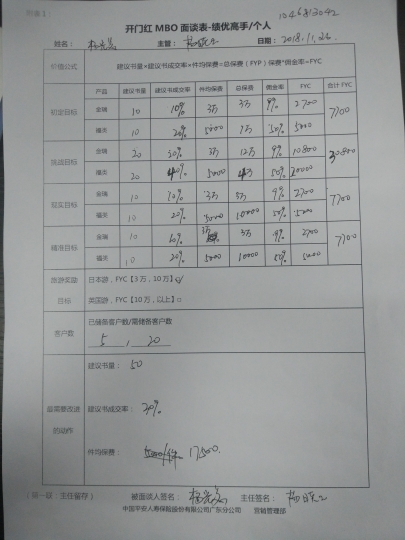 附表1
1046813042
开门红 MBO 面谈表-绩优高手/个人
姓名： 主管： 日期：2018.11.26
价值公式 建议书量×建议书成交率×件均保费=总保费（FYP）保费*佣金率=FYC
产品 建议书量 建议书成交率 件均保费 总保费 佣金率 FYC 合计 FYC
初定目标 金瑞 10 10% 3万 3万 9% 2700 7700
福类 10 20% 5000 1万 50% 5000
挑战目标 金瑞 20 20% 3万 12万 9% 10800 30800
福类 20 40% 5000 4万 50% 20000
现实目标 金瑞 10 10% 3万 3万 9% 2700 7700
福类 10 20% 5000 10000 50% 5000
精准目标 金瑞 10 10% 3万 3万 9% 2700 7700
福类 10 20% 5000 10000 50% 5000
旅游奖励 日本游，FYC【3万，10万】☑
目标 英国游，FYC【10万，以上】□
客户数 已储备客户数/需储备客户数
5 , 20
建议书量：50
最需要改进 建议书成交率：20%
的动作
件均保费： 17500
（一联：主任留存） 被面谈人签名： 主任签名：
中国平安人寿保险股份有限公司广东分公司 营销管理部